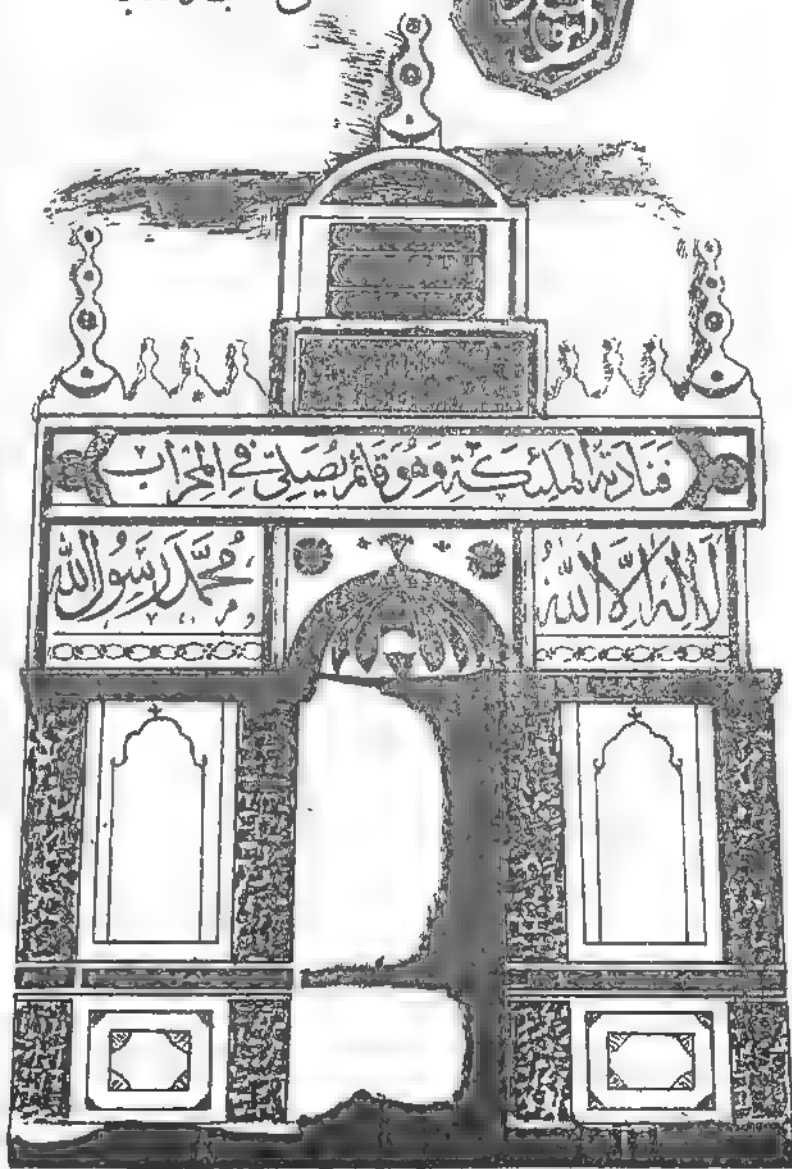 فنادته الملئكة وهو قائم يصلي في المحراب
لا اله الا الله
محمد رسول الله